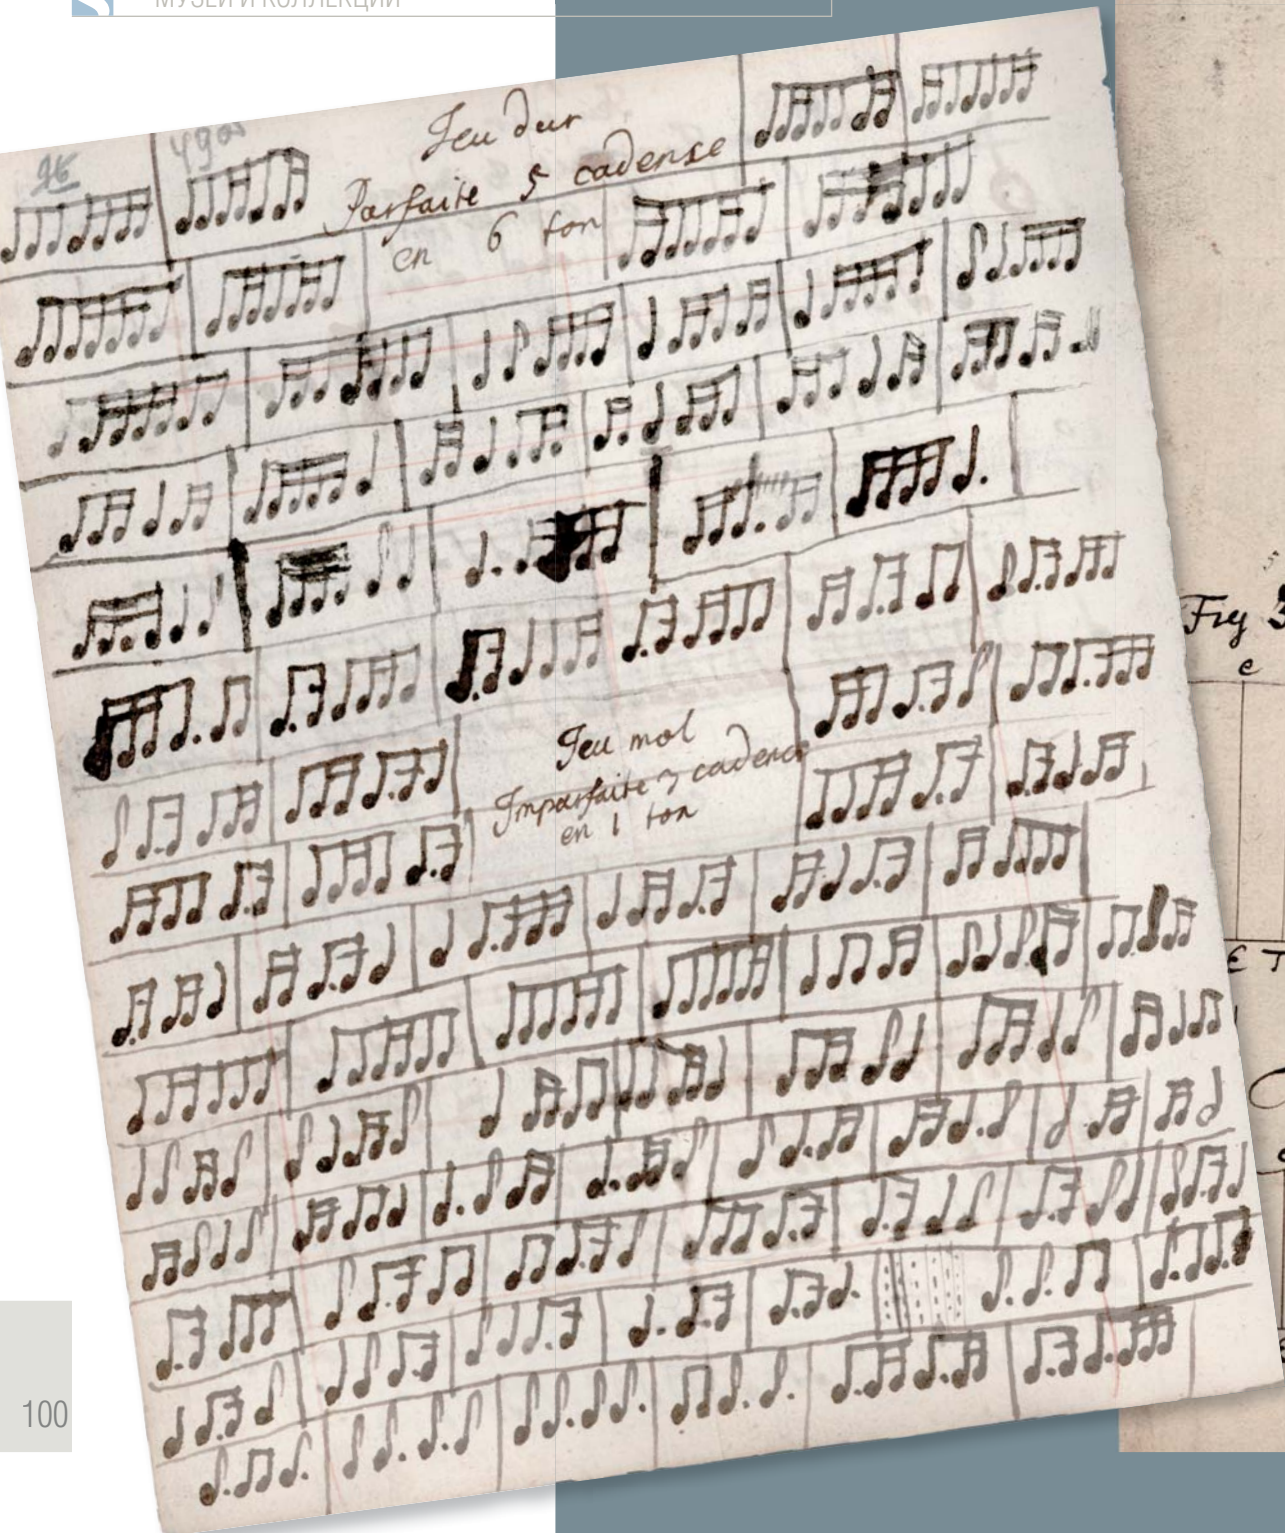 МУЗЕИ И КОЛЛЕКЦИИ
96
490
Jeu dur
Parfaite 5 cadense
en 6 ton
Jeu mol
Imparfaite 7 cadence
en 1 ton
Fry
e
E T
100